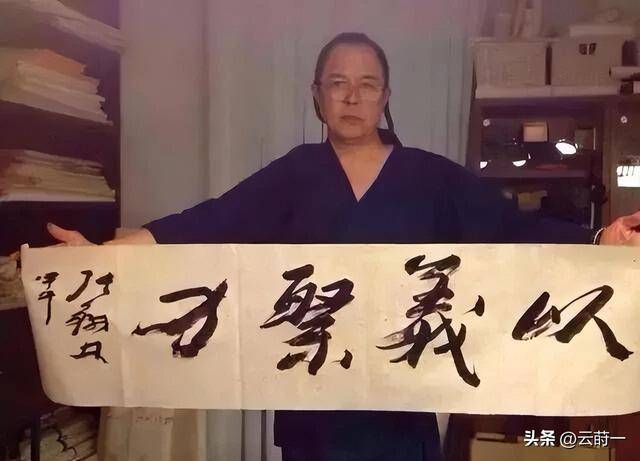 以義聚力
头条 @云莳一